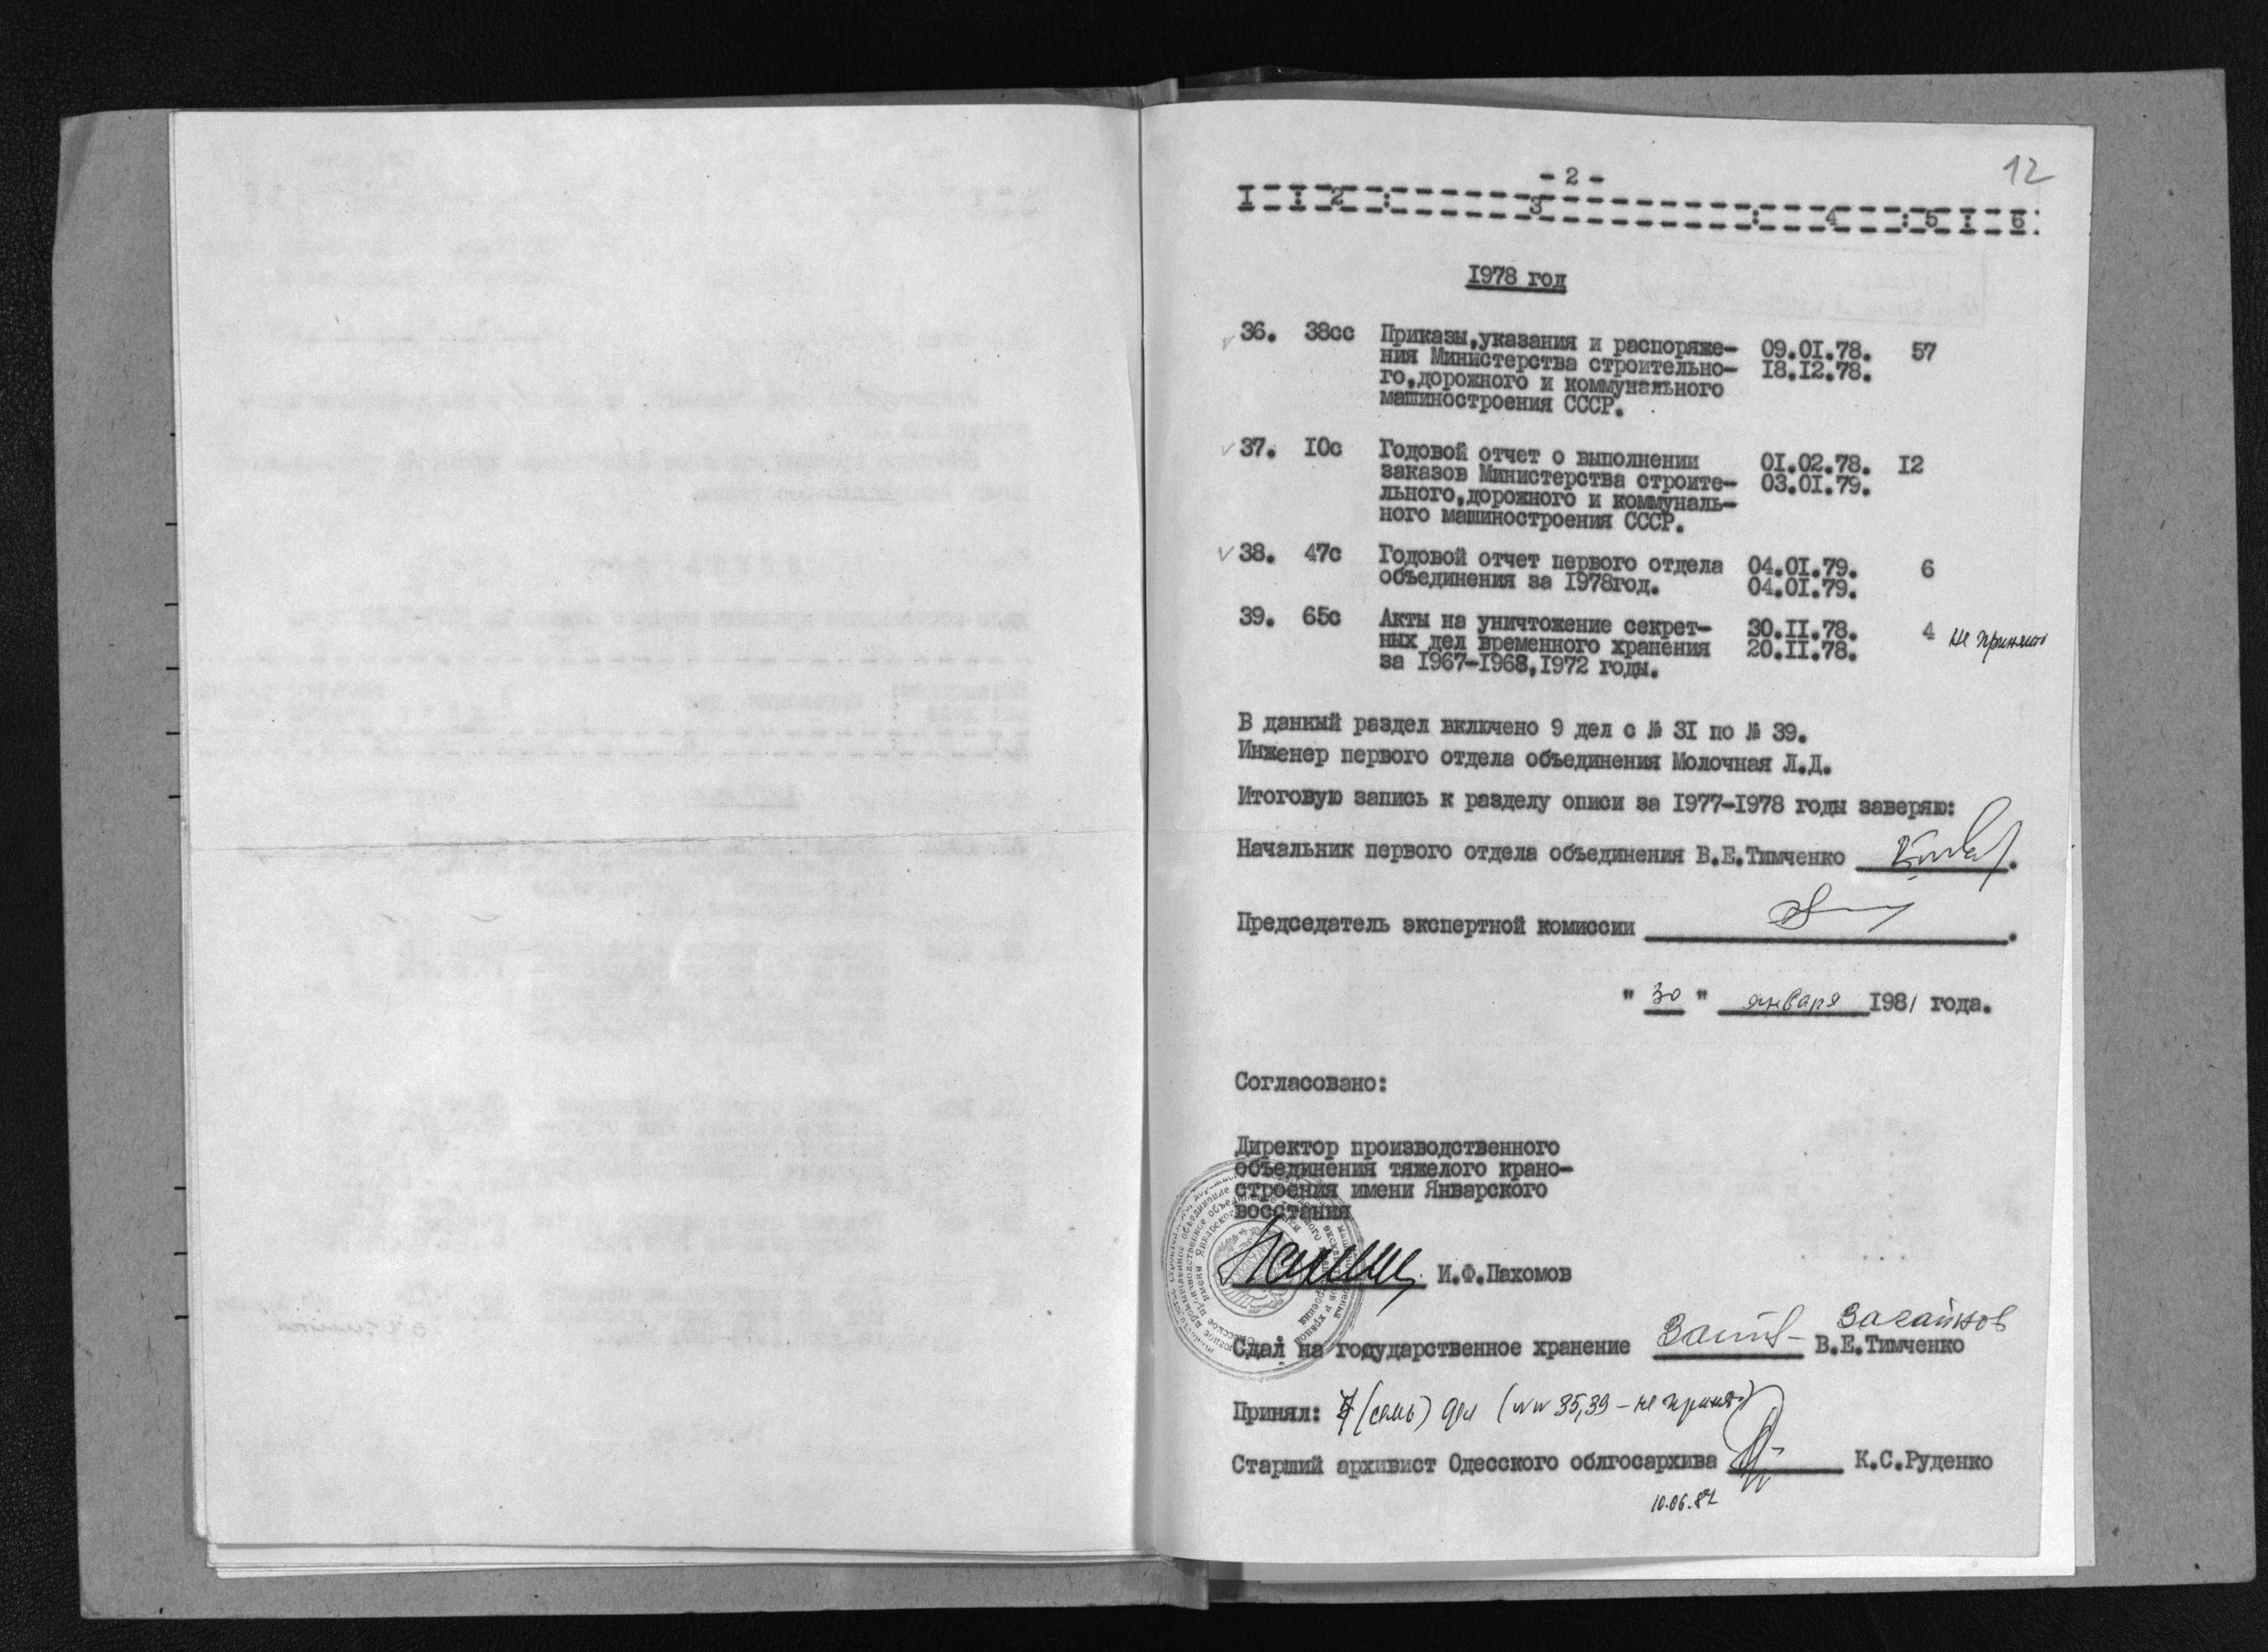 12
- 2 -
I : 2 : 3 : 4 : 5 : 6
1978 год
36. 38сс Приказы,указания и распоряже- 09.01.78. 57
ния Министерства строительно- 18.12.78.
го,дорожного и коммунального
машиностроения СССР.
37. 10с Годовой отчет о выполнении 01.02.78. 12
заказов Министерства строите- 03.01.79.
льного,дорожного и коммуналь-
ного машиностроения СССР.
38. 47с Годовой отчет первого отдела 04.01.79. 6
объединения за 1978год. 04.01.79.
39. 65с Акты на уничтожение секрет- 30.11.78. 4 не приняты
ных дел временного хранения 20.11.78.
за 1967-1968,1972 годы.
В данный раздел включено 9 дел с № 31 по № 39.
Инженер первого отдела объединения Молочная Л.Д.
Итоговую запись к разделу описи за 1977-1978 годы заверяю:
Начальник первого отдела объединения В.Е.Тимченко
Председатель экспертной комиссии
" 30 " января 1981 года.
Согласовано:
Директор производственного
объединения тяжелого крано-
строения имени Январского
восстания
И.Ф.Пахомов
Загайнов
Сдал на государственное хранение В.Е.Тимченко
Принял: 7 (семь) дел (№№ 35,39 - не приняты)
Старший архивист Одесского облгосархива К.С.Руденко
10.06.82